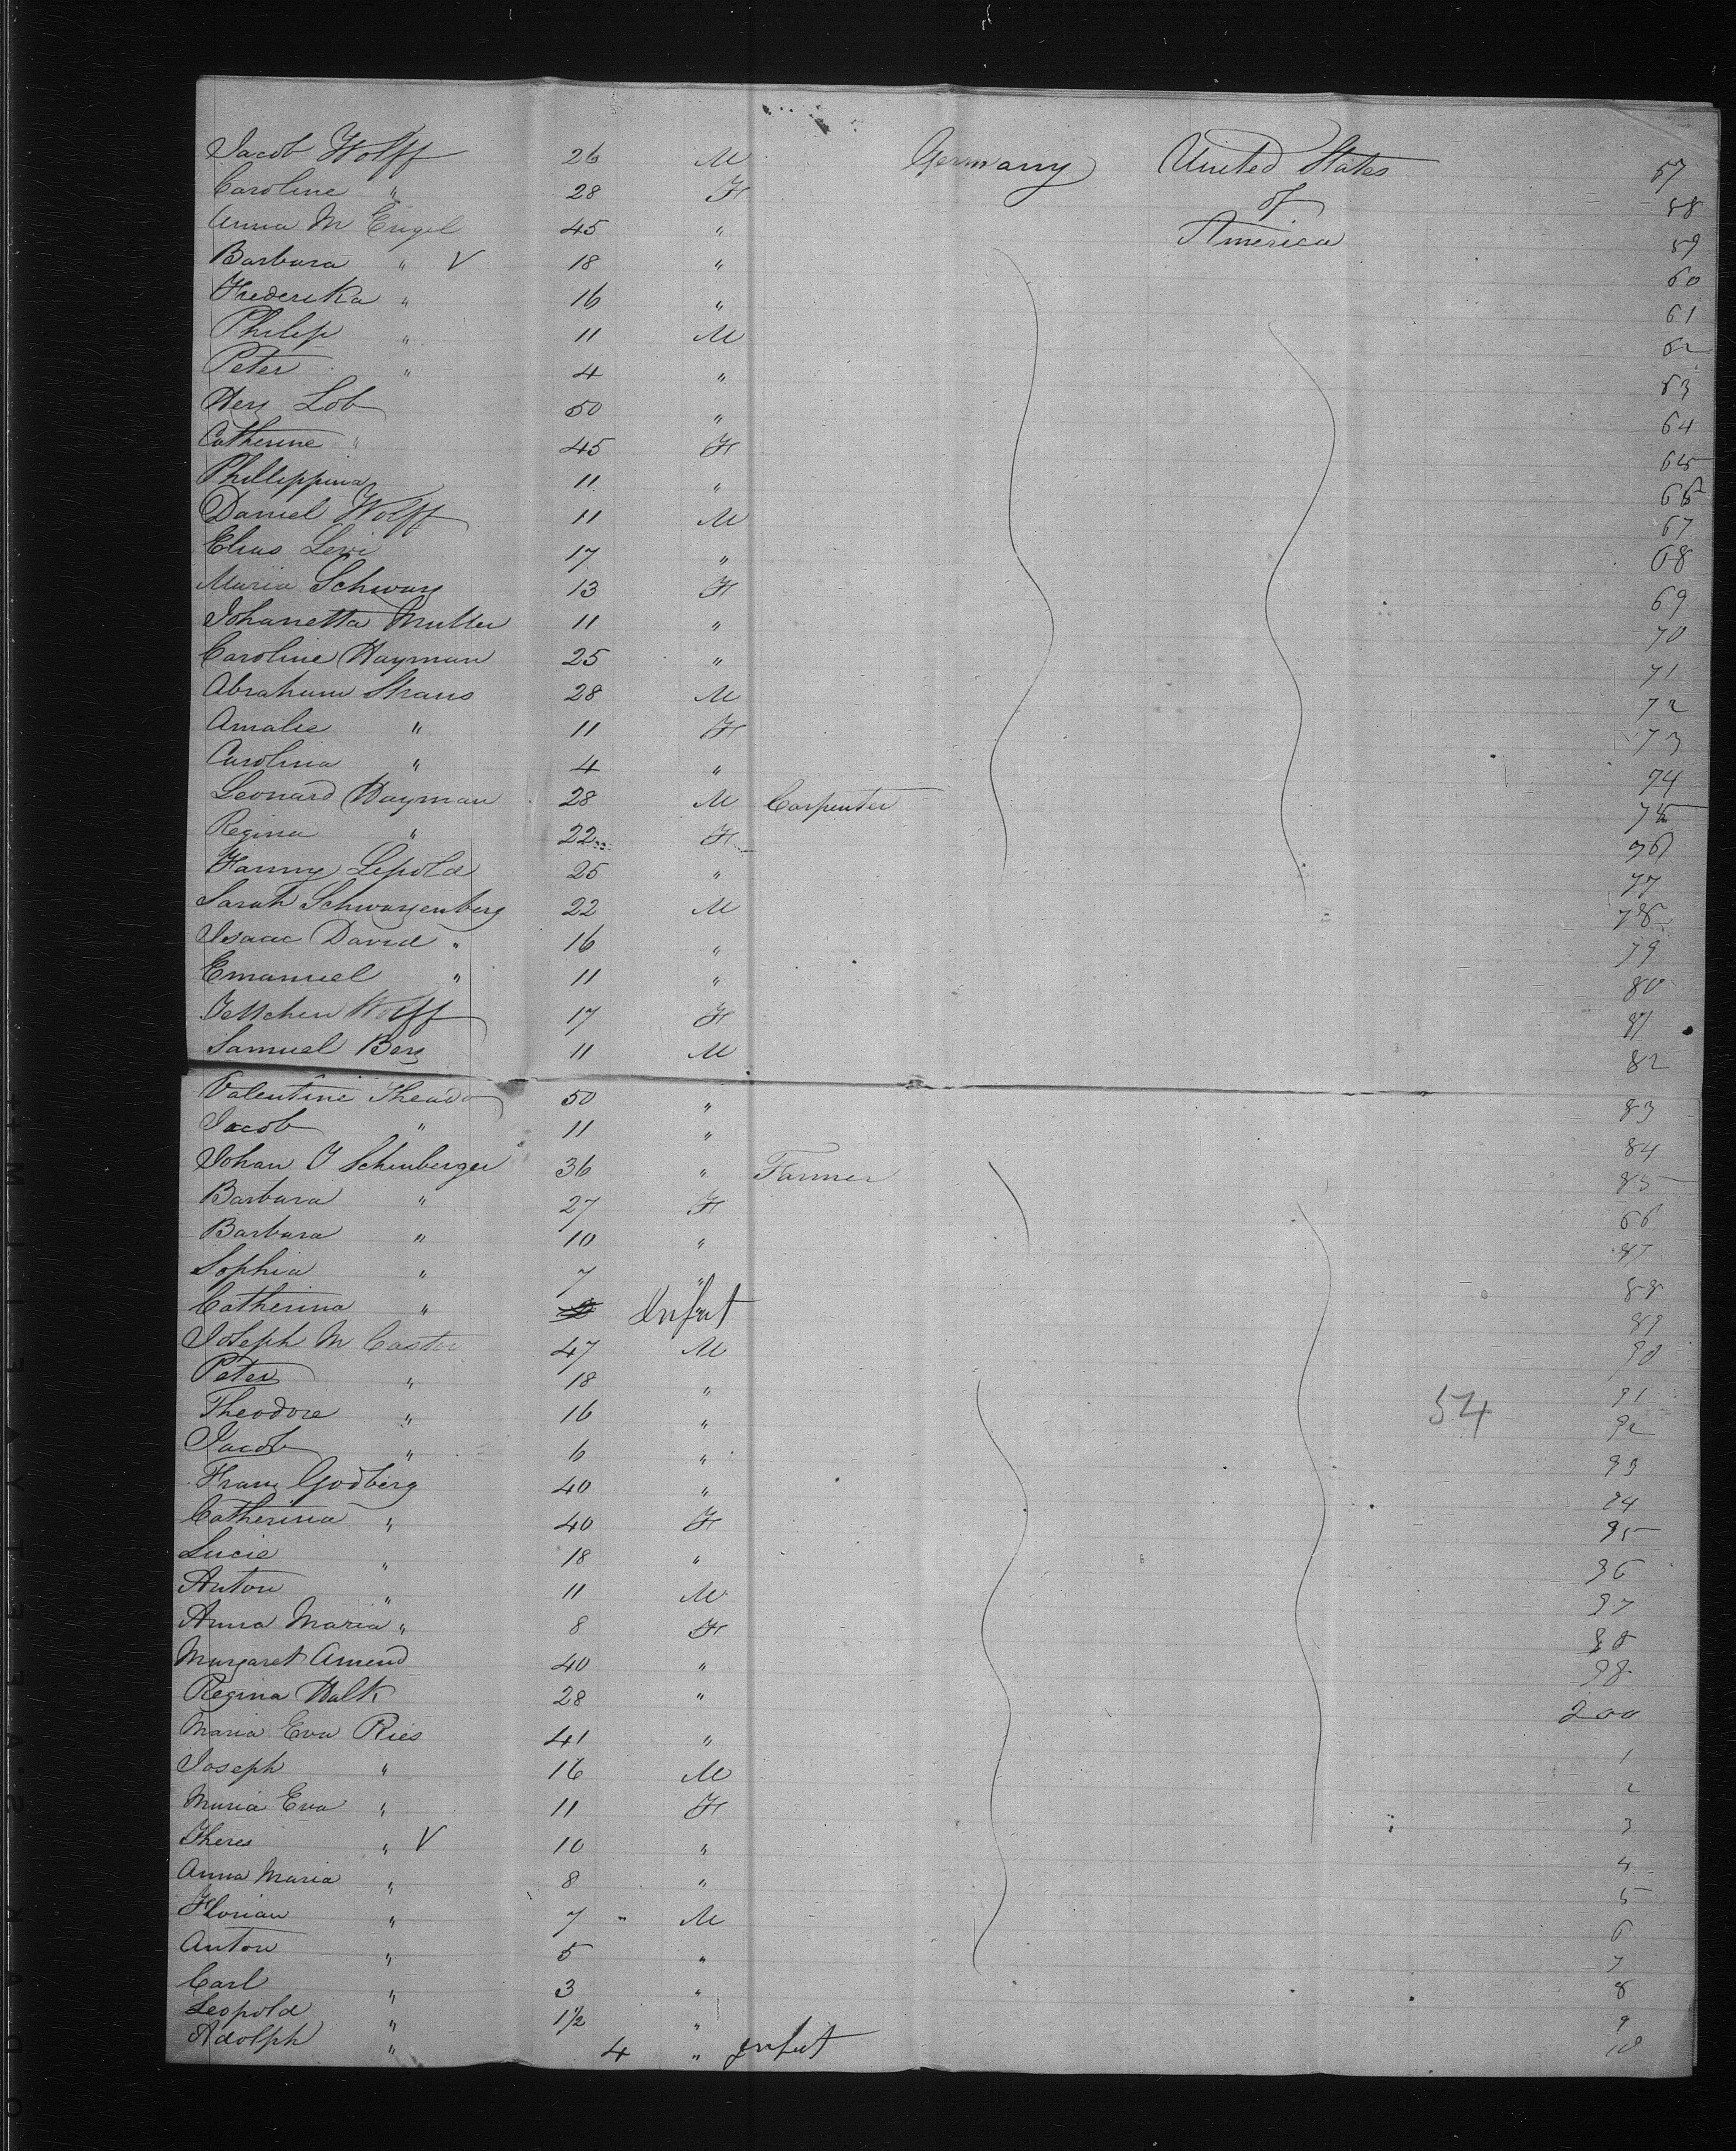 Jacob Wolff 26 M Germany United States 57
Caroline " 28 F of 58
Anna M Engel 45 " America 59
Barbara " V 18 " 60
Frederika " 16 " 61
Philip " 11 M 62
Peter " 4 " 63
Herz Lob 50 " 64
Catherine " 45 F 65
Phillippina 11 " 66
Daniel Wolff 11 M 67
Elias Levi 17 " 68
Maria Schwarz 13 F 69
Johanetta Muller 11 " 70
Caroline Hayman 25 " 71
Abraham Straus 28 M 72
Amalie " 11 F 73
Carolina " 4 " 74
Leonard Hayman 28 M Carpenter 75
Regina " 22 F 76
Fanny Lepold 25 " 77
Sarah Schwarzenberg 22 M 78
Isaac David " 16 " 79
Emanuel " 11 " 80
Jettchen Wolff 17 F 81
Samuel Berg 11 M 82
Valentine 50 " 83
Jacob " 11 " 84
Johan J Schenberger 36 " Farmer 85
Barbara " 27 F 86
Barbara " 10 " 87
Sophia " 7 " 88
Catherina " Infant 89
Joseph M Castor 47 M 90
Peter " 18 " 91
Theodore " 16 " 54 92
Jacob " 6 " 93
Franz Godberg 40 " 94
Catherina " 40 F 95
Lucie " 18 " 96
Anton " 11 M 97
Anna Maria " 8 F 98
Margaret Amend 40 " 98
Regina Walk 28 " 200
Maria Eva Ries 41 " 1
Joseph " 16 M 2
Maria Eva " 11 F 3
Theres " V 10 " 4
Anna Maria " 8 " 5
Florian " 7 " M 6
Anton " 5 " 7
Carl " 3 " 8
Leopold " 1½ " 9
Adolph " 4 " infant 10